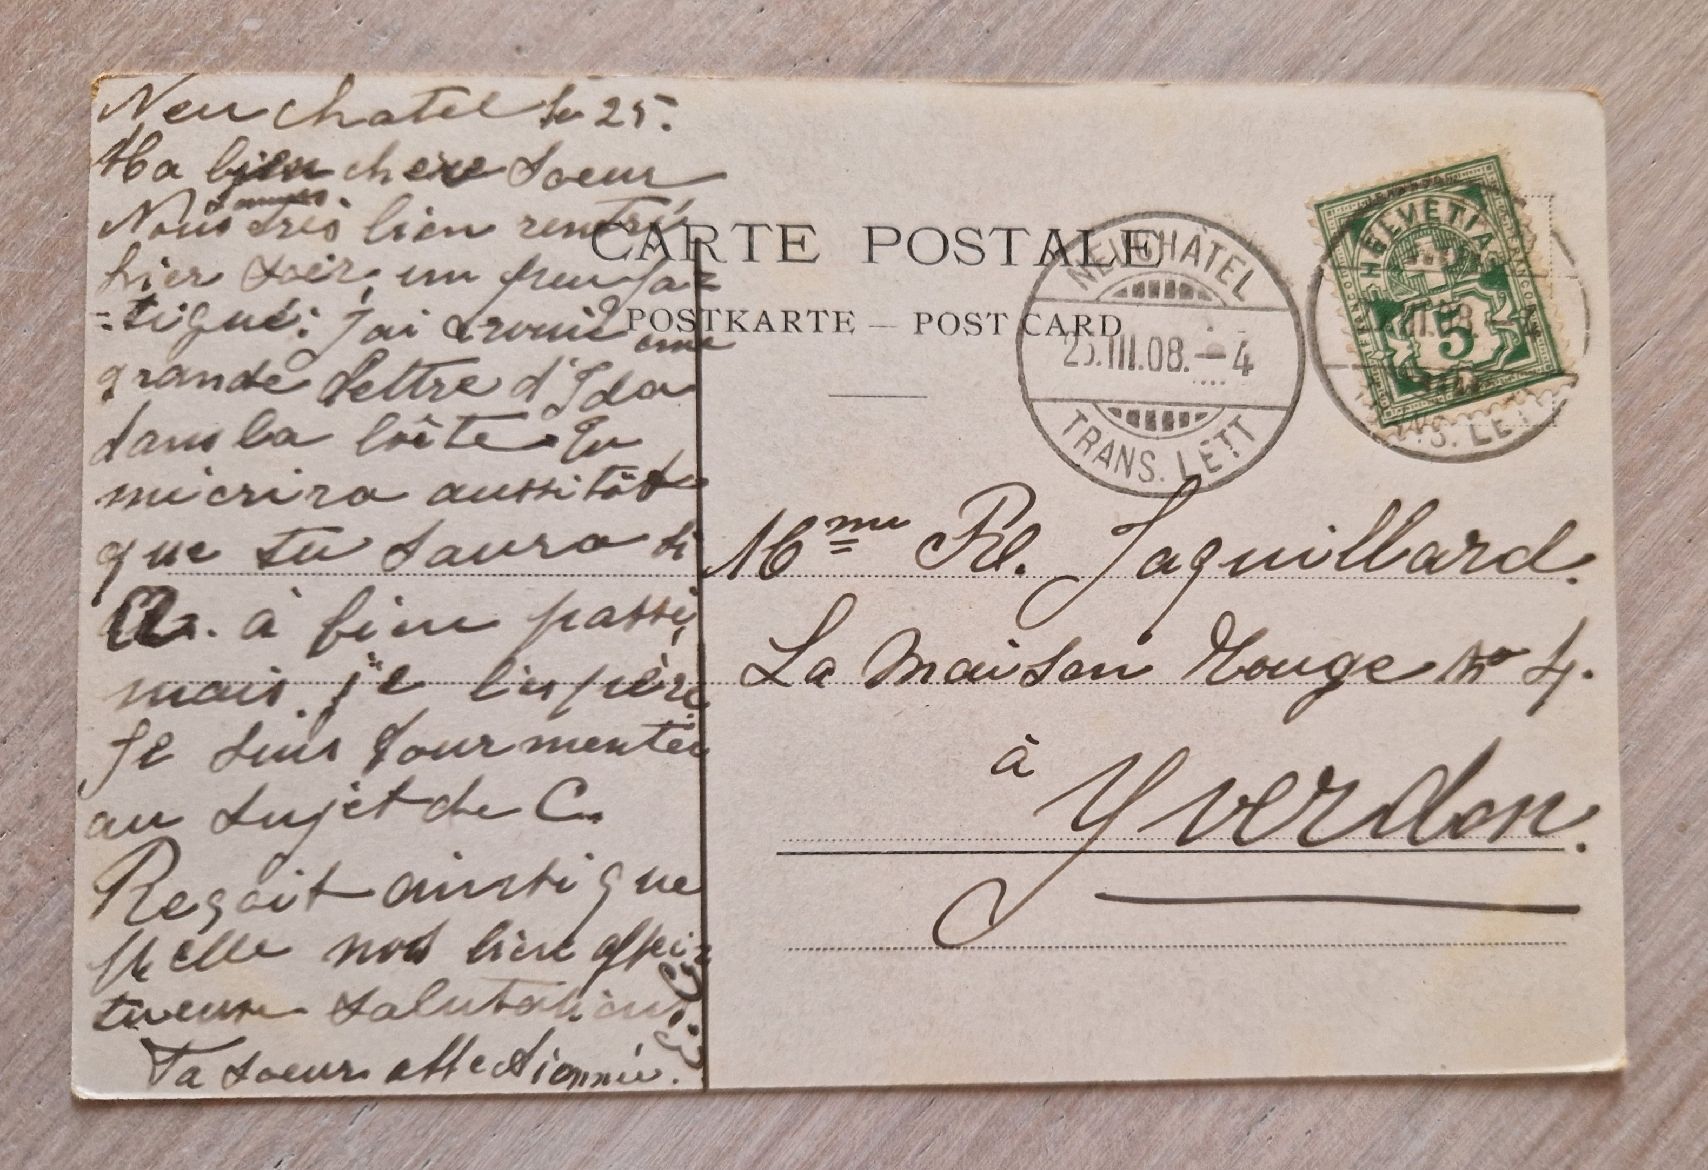 Neuchatel le 25.
Ma bien chère Soeur
Nous sommes très bien rentrés
hier soir, un peu fa=
=tigué: j'ai trouvé
une
grande lettre d'Ida
dans la boîte. Tu
m'écrira aussitôt
que tu saura si
à bien passé
mais je l'espère
Je suis tourmentée
au sujet de C.
Reçoit ainsi que
elle nos bien affec=
tueuse salutations
Ta soeur affectionnée.
CARTE POSTALE
POSTKARTE — POST CARD
NEUCHATEL
25.III.08.–4
TRANS. LETT
HELVETIA
FRANCO
5
S. LETT
Mme Jaquillard.
La Maison Rouge No 4.
à
Yverdon.